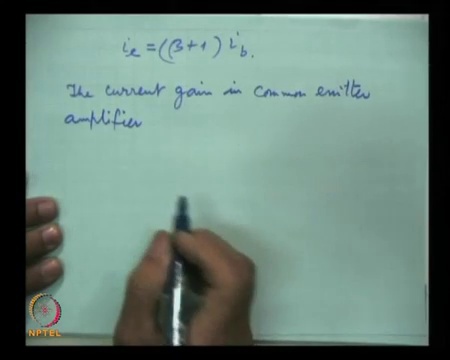 i_e = (β+1) i_b.
The current gain in common emitter
amplifier
NPTEL